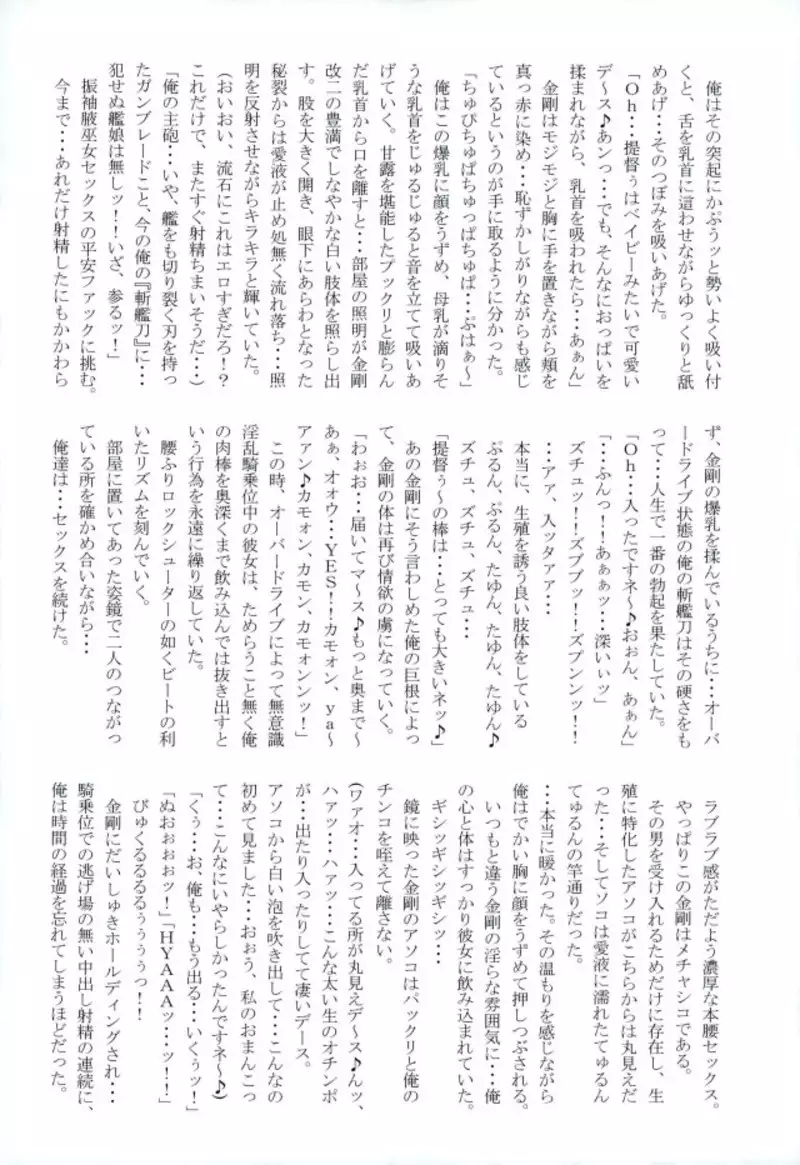 俺はその突起にかぷうッと勢いよく吸い付
くと、舌を乳首に這わせながらゆっくりと舐
めあげ・・・そのつぼみを吸いあげた。
「Oh・・・提督ぅはベイビーみたいで可愛い
デ～ス♪あンっ・・・でも、そんなにおっぱいを
揉まれながら、乳首を吸われたら・・・あぁん」
金剛はモジモジと胸に手を置きながら頬を
真っ赤に染め・・・恥ずかしがりながらも感じ
ているというのが手に取るように分かった。
「ちゅぴちゅぱちゅっぱちゅぱ・・・ぷはぁ～」
俺はこの爆乳に顔をうずめ、母乳が滴りそ
うな乳首をじゅるじゅると音を立てて吸いあ
げていく。甘露を堪能したプックリと膨らん
だ乳首から口を離すと・・・部屋の照明が金剛
改二の豊満でしなやかな白い肢体を照らし出
す。股を大きく開き、眼下にあらわとなった
秘裂からは愛液が止め処無く流れ落ち・・・照
明を反射させながらキラキラと輝いていた。
(おいおい、流石にこれはエロすぎだろ！？
これだけで、またすぐ射精ちまいそうだ・・・)
「俺の主砲・・・いや、艦をも切り裂く刃を持っ
たガンブレードこと、今の俺の『斬艦刀』に・・・
犯せぬ艦娘は無しッ！！いざ、参るッ！」
振袖腋巫女セックスの平安ファックに挑む。
今まで・・・あれだけ射精したにもかかわら
ず、金剛の爆乳を揉んでいるうちに・・・オーバ
ードライブ状態の俺の斬艦刀はその硬さをも
って・・・人生で一番の勃起を果たしていた。
「Oh・・・入ったですネ～♪おぉん、あぁん」
「・・・ふんっ！！あぁぁッ・・・深いぃッ」
ズチュッ！！ズブブッ！！ズプンンッ！！
・・・アァ、入ッタァァ・・・
本当に、生殖を誘う良い肢体をしている
ぷるん、ぷるん、たゆん、たゆん、たゆん♪
ズチュ、ズチュ、ズチュ・・・
「提督ぅ～の棒は・・・とっても大きいネッ♪」
あの金剛にそう言わしめた俺の巨根によっ
て、金剛の体は再び情欲の虜になっていく。
「わぉお・・・届いてマ～ス♪もっと奥まで～
あぁ、オォウ・・・YES！！カモォン、ya～
アァン♪カモォン、カモン、カモォンンッ！」
この時、オーバードライブによって無意識
淫乱騎乗位中の彼女は、ためらうこと無く俺
の肉棒を奥深くまで飲み込んでは抜き出すと
いう行為を永遠に繰り返していた。
腰ふりロックシューターの如くビートの利
いたリズムを刻んでいく。
部屋に置いてあった姿鏡で二人のつながっ
ている所を確かめ合いながら・・・
俺達は・・・セックスを続けた。
ラブラブ感がただよう濃厚な本腰セックス。
やっぱりこの金剛はメチャシコである。
その男を受け入れるためだけに存在し、生
殖に特化したアソコがこちらからは丸見えだ
った・・・そしてソコは愛液に濡れたてゅるん
てゅるんの竿通りだった。
・・・本当に暖かった。その温もりを感じながら
俺はでかい胸に顔をうずめて押しつぶされる。
いつもと違う金剛の淫らな雰囲気に・・・俺
の心と体はすっかり彼女に飲み込まれていた。
ギシッギシッギシッ・・・
鏡に映った金剛のアソコはパックリと俺の
チンコを咥えて離さない。
(ワァオ・・・入ってる所が丸見えデ～ス♪んッ、
ハァッ・・・ハァッ・・・こんな太い生のオチンポ
が・・・出たり入ったりしてて凄いデース。
アソコから白い泡を吹き出して・・・こんなの
初めて見ました・・・おぉう、私のおまんこっ
て・・・こんなにいやらしかったんですネ～♪)
「くぅ・・・お、俺も・・・もう出る・・・いくぅッ！」
「ぬおぉぉぉッ！」「HYAAAッ・・・ッ！！」
びゅくるるるるぅぅぅぅっ！！
金剛にだいしゅきホールディングされ・・・
騎乗位での逃げ場の無い中出し射精の連続に、
俺は時間の経過を忘れてしまうほどだった。